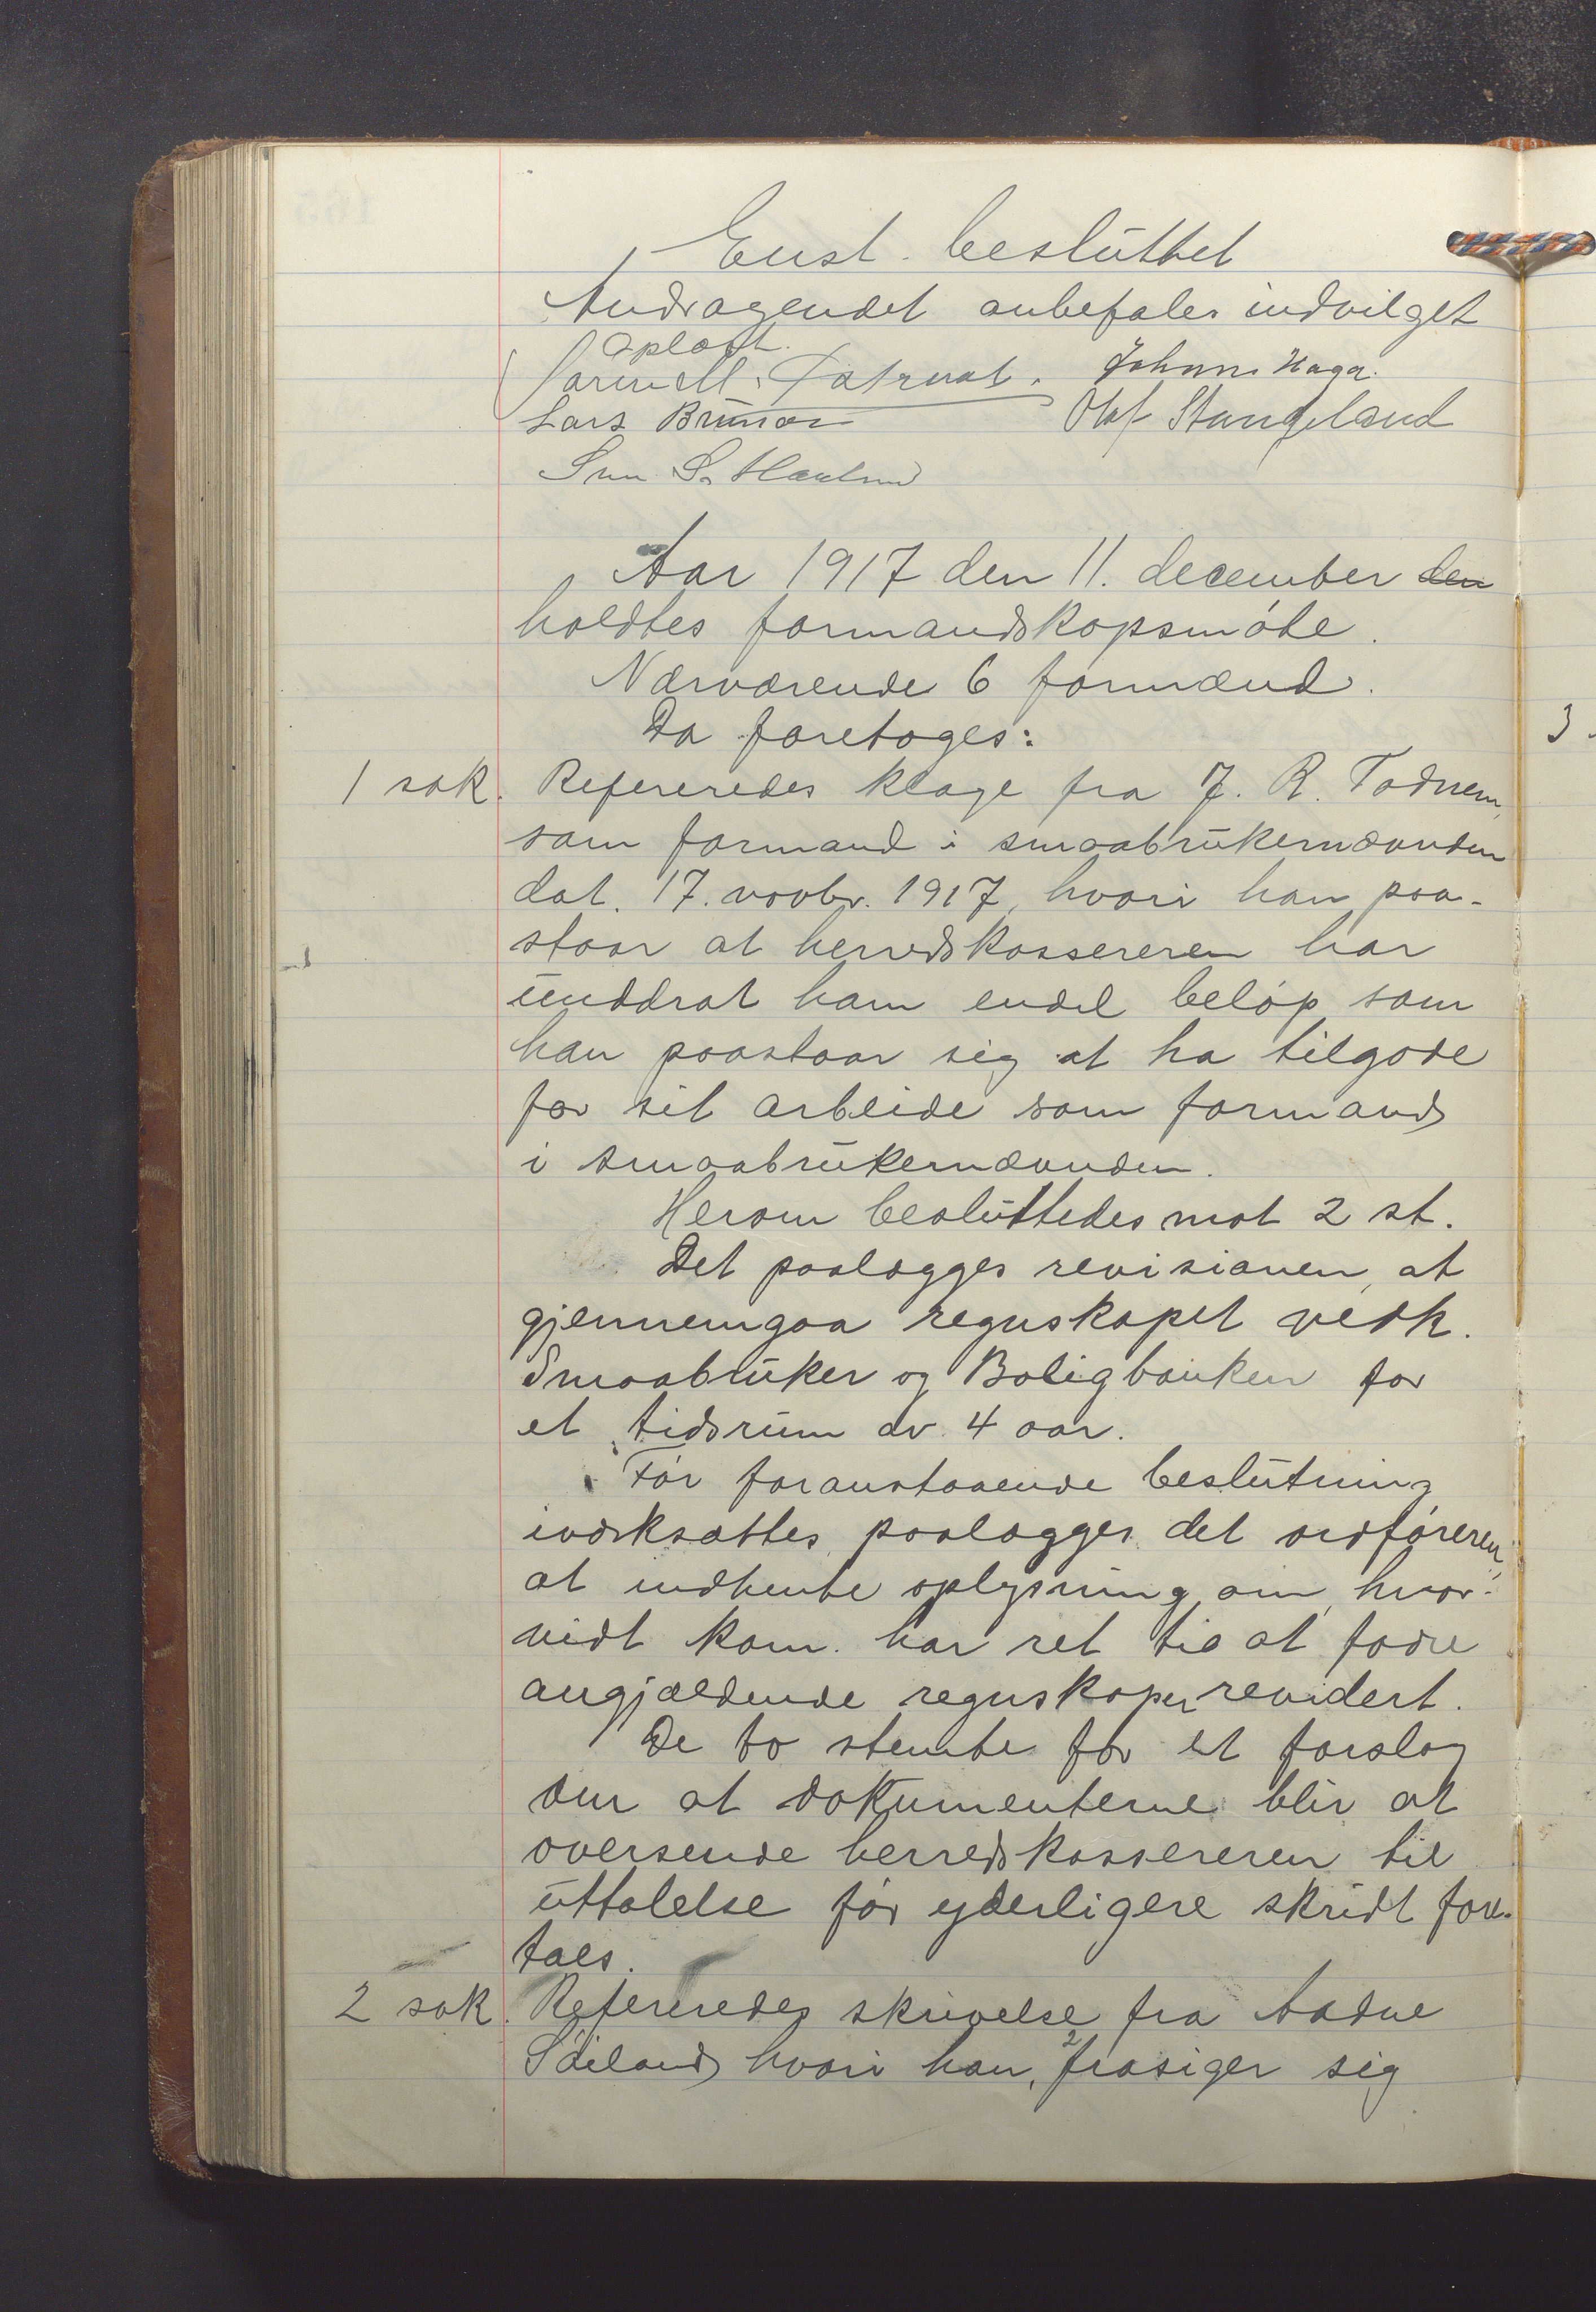 Enst. besluttet
Andragendet anbefales indvilget
Oplæst.
Johann Haga.
Lars Brunes
Olaf Stangeland
Aar 1917 den 11. december den
holdtes formandskapsmöte.
Nærværende 6 formænd.
Da foretoges:
1 sak. Refereredes klage fra J. R. Todnem,
som formand i smaabrukernævnden
dat. 17. novbr. 1917, hvori han paa-
staar at herredskassereren har
unddrat ham endel beløp som
han paastaar sig at ha tilgode
for sit arbeide som formand
i smaabrukernævnden.
Herom besluttedes mot 2 st.
Det paalægges revisionen, at
gjennemgaa regnskapet vedk.
Smaabruker og Boligbanken for
et tidsrum av 4 aar.
Før foranstaaende beslutning
iværksættes paalægges det ordføreren,
at indhente oplysning om, hvor-
vidt kom. har ret til at fodre
angjældende regnskaper revidert.
De to stemte for et forslag
om at dokumenterne blir at
oversende herredskassereren til
uttalelse før yderligere skridt fore-
taes.
2 sak. Refereredes skrivelse fra Aadne
Söiland hvori han, frasiger sig
3.